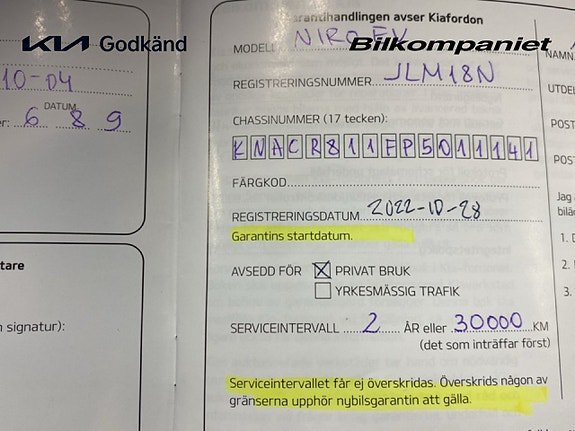 KIA Godkänd
Bilkompaniet
10-04
DATUM
er: 6 8 9
tare
n signatur):
arantihandlingen avser Kiafordon
MODELL NIRO EV
REGISTRERINGSNUMMER JLM18N
CHASSINUMMER (17 tecken):
KNACR811FP5011141
FÄRGKOD
REGISTRERINGSDATUM 2022-10-28
Garantins startdatum.
AVSEDD FÖR ☒ PRIVAT BRUK
☐ YRKESMÄSSIG TRAFIK
SERVICEINTERVALL 2 ÅR eller 30000 KM
(det som inträffar först)
Serviceintervallet får ej överskridas. Överskrids någon av
gränserna upphör nybilsgarantin att gälla.
NAMN
UTDEL
POST
POST
Jag
bilä
1. D
2.
3.